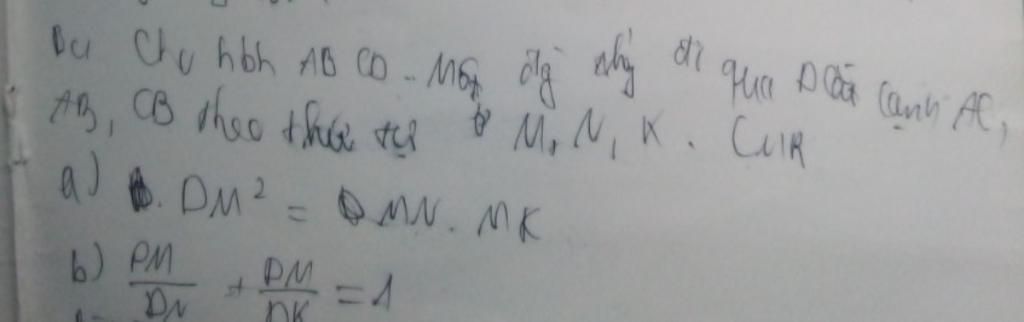 Cho hbh AB CD. Một đg thẳng đi qua D cắt cạnh AC,
AB, CB theo thứ tự ở M, N, K. CMR
a) DM² = MN. MK
b) DM/DN + DM/DK = 1